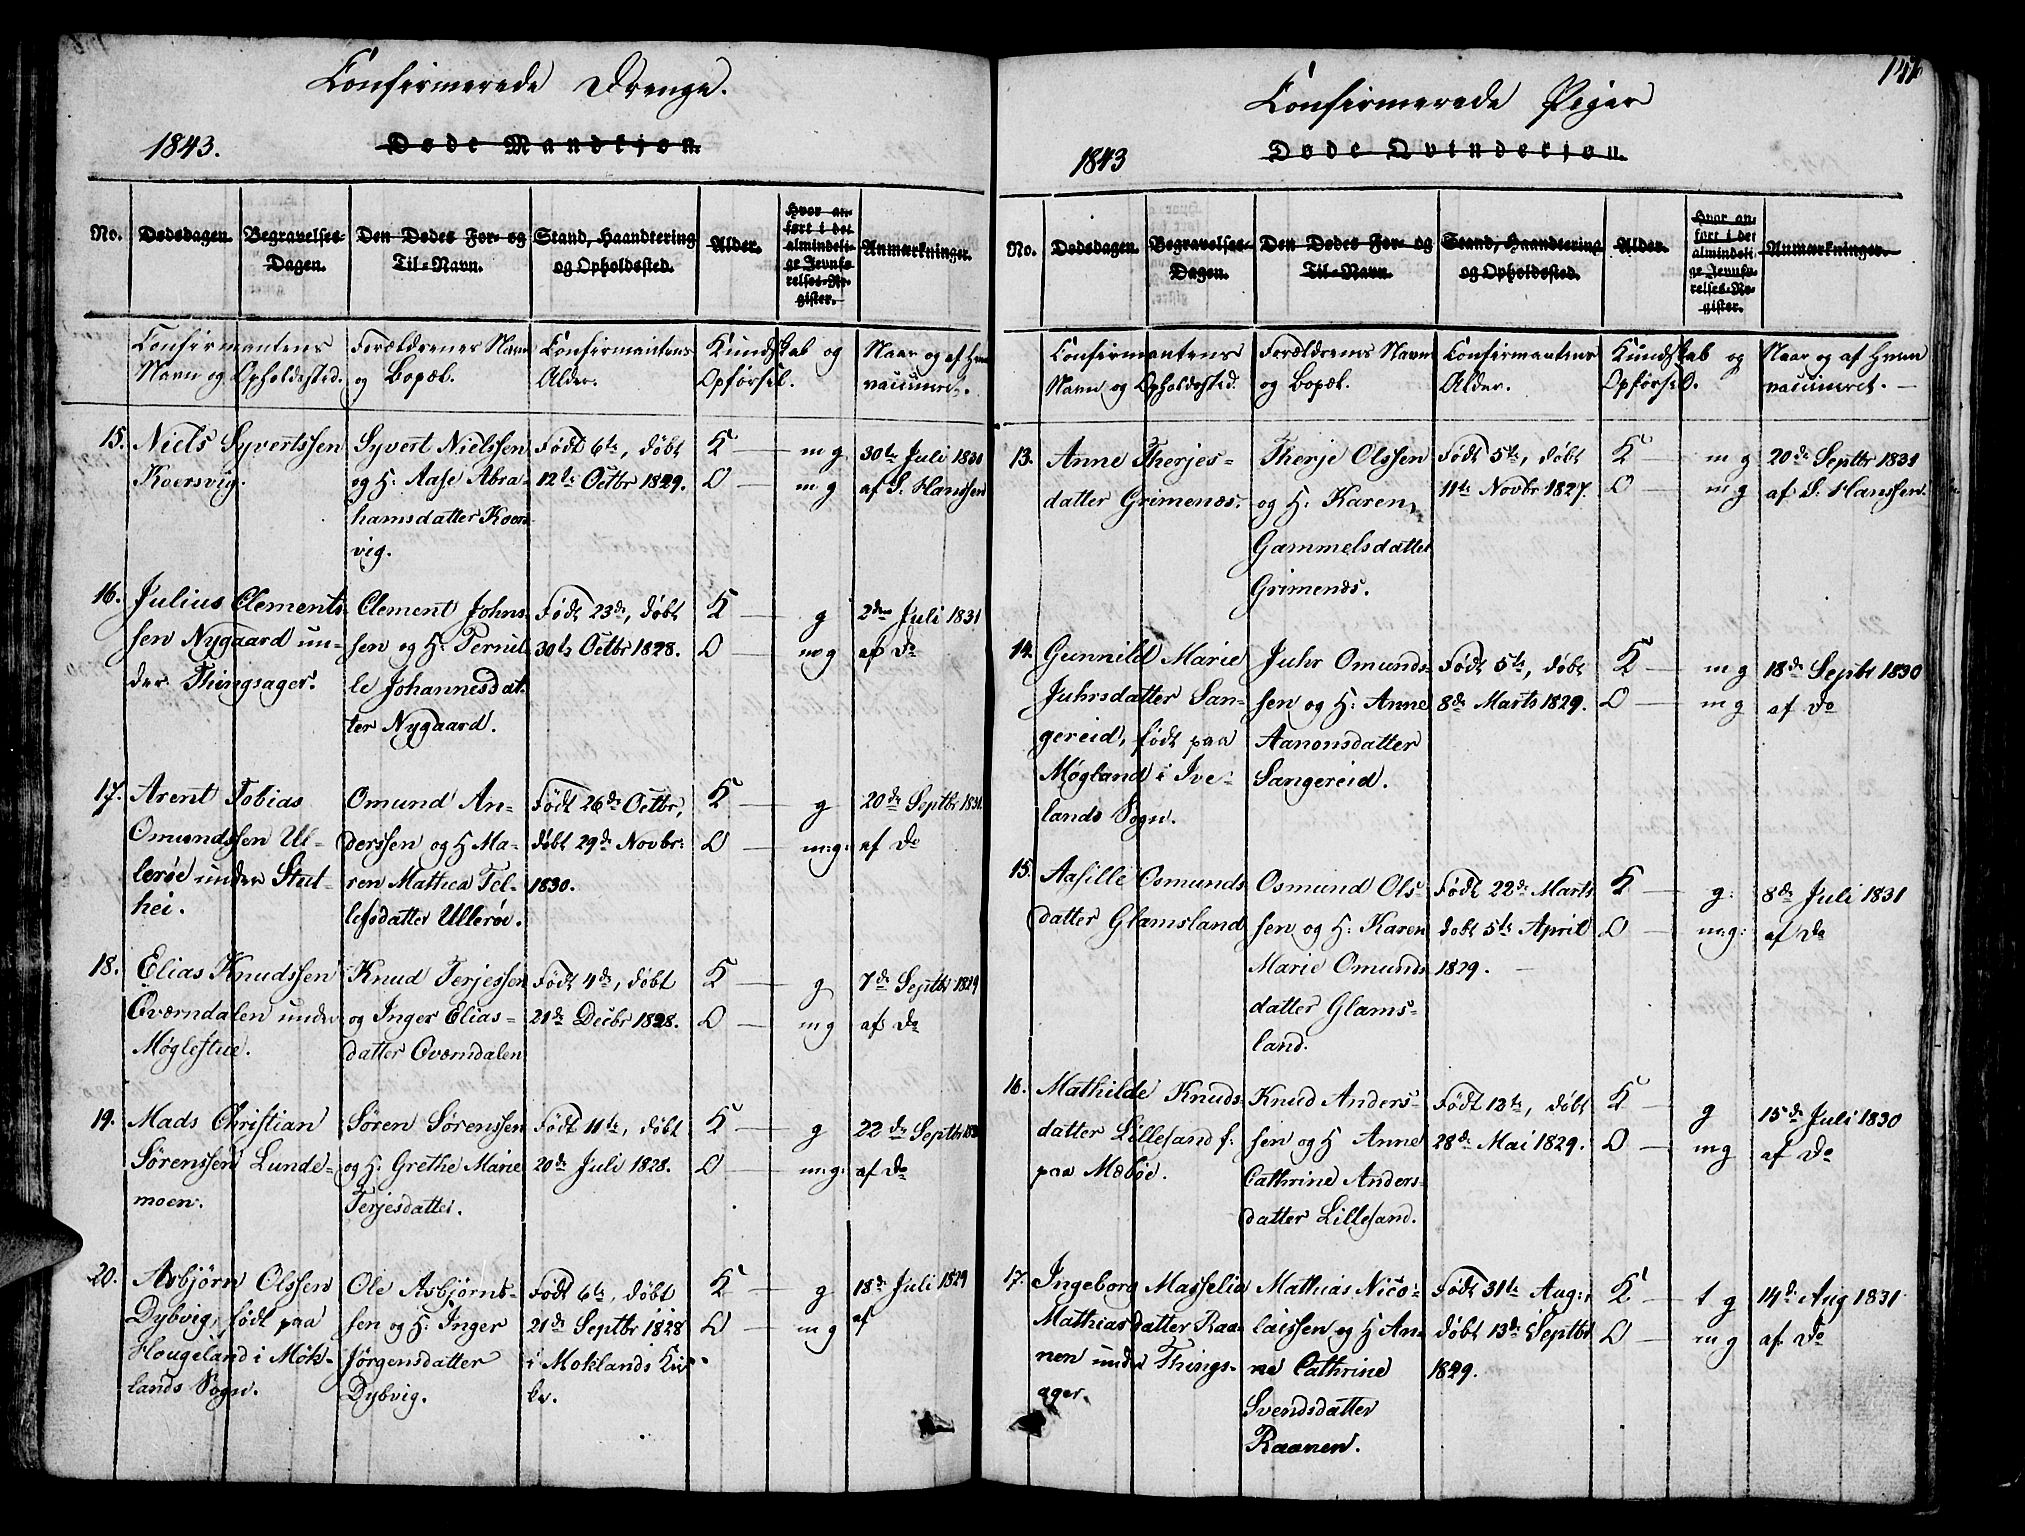 Confirmerede Drenge.
1843.
Døde Mandkjøn.
No.
Dødsdagen.
Begravelses-
Dagen.
Den Dødes For- og
Til-Navn.
Stand, Haandtering
og Opholdssted.
Alder.
Hvor an-
ført i det
almindeli-
ge Jevnfø-
relses-Re-
gister.
Anmærkninger.
Confirmantens
Navn og Opholdssted.
Forældrenes Navn
og Bopæl.
Confirmantens
Alder.
Kundskab og
Opførsel.
Naar og af Hvem
vaccineret.
15. Niels Syvertssen
Koersvig.
Syvert Nielssen
og H: Aase Abra-
hamsdatter Koers-
vig.
Født 6te, døbt
12te Octbr 1829.
K — mg
O — mg
30te Juli 1831
af S. Hanssen
16. Julius Clements-
sen Nygaard un-
der Thingsager.
Clement Johns-
sen og H: Pernil-
le Johannesdat-
ter Nygaard.
Født 23de, døbt
30te Octbr 1828.
K — g
O — mg
2den Juli 1831
af Do
17. Arent Tobias
Omundssen Ul-
lerøe under Stut-
hei.
Omund An-
derssen og H Ma-
ren Mathea Tel-
lefsdatter Ullerøe.
Født 26de Octbr,
døbt 29de Novbr:
1830.
K — g
O — m:g:
20de Septbr 1831.
af Do
18. Elias Knudssen
Qværndalen under
Møglestue.
Knud Terjessen
og Inger Elias-
datter Qværndalen
Født 4de, døbt
21de Decbr 1828.
K — g
O — mg
7de Septbr 1829
af Do
19. Mads Christian
Sørenssen Lunde-
moen.
Søren Sørenssen
og H: Grethe Marie
Terjesdatter.
Født 11te, døbt
20de Juli 1828.
K — g
O — m:g:
22de Septbr
af Do
20. Asbjørn Olssen
Dybvig, født paa
Hougeland i Møk-
lands Sogn.
Ole Asbjørns-
sen og H: Inger
Jørgensdatter
Dybvig.
Født 6te, døbt
21de Septbr 1828
i Moklands Kir-
ke.
K — g
O — mg
18de Juli 1829
af
Confirmerede Piger
1843
Døde Qvindekjøn.
No.
Dødsdagen.
Begravelses-
Dagen.
Den Dødes For- og
Til-Navn.
Stand, Haandtering
og Opholdssted.
Alder.
Hvor an-
ført i det
almindeli-
ge Jevnfø-
relses-Re-
gister.
Anmærkninger.
Confirmantens
Navn og Opholdssted.
Forældrenes Navn
og Bopæl.
Confirmantens
Alder.
Kundskab og
Opførsel.
Naar og af Hvem
vaccineret.
13. Anne Therjes-
datter Grimenæs.
Therje Olssen
og H: Karen
Gammelsdatter
Grimenæs.
Født 5te, døbt
11te Novbr 1827.
K — mg
O — mg
20de Septbr 1831
af S. Hanssen.
14. Gunnild Marie
Juhrsdatter San-
gereid, født paa
Møgland i Ive-
lands Sogn.
Juhr Omunds-
sen og H: Anne
Aanonsdatter
Sangereid.
Født 5te, døbt
8de Marts 1829.
K — mg
O — mg
18de Septbr 1830
af Do
15. Aasille Osmunds
datter Glamsland
Osmund Ols-
sen og H: Karen
Marie Omunds
datter Glams-
land.
Født 22de Marts
døbt 5te April
1829.
K — g:
O — m:g:
8de Juli 1831
af Do
16. Mathilde Knuds
datter Lillesand f:
paa Mæbøe.
Knud Anders-
sen og H Anne
Cathrine Anders-
datter Lillesand.
Født 12te, døbt
28de Mai 1829.
K — g
O — mg
15de Juli 1830
af Do
17. Ingeborg Masselia
Mathiasdatter Raa-
nen under Things-
ager.
Mathias Nico-
laissen og H An-
ne Cathrine
Svendsdatter
Raanen.
Født 31te Aug:,
døbt 13de Septbr
1829.
K — t g
O — mg
14de Aug 1831
af Do